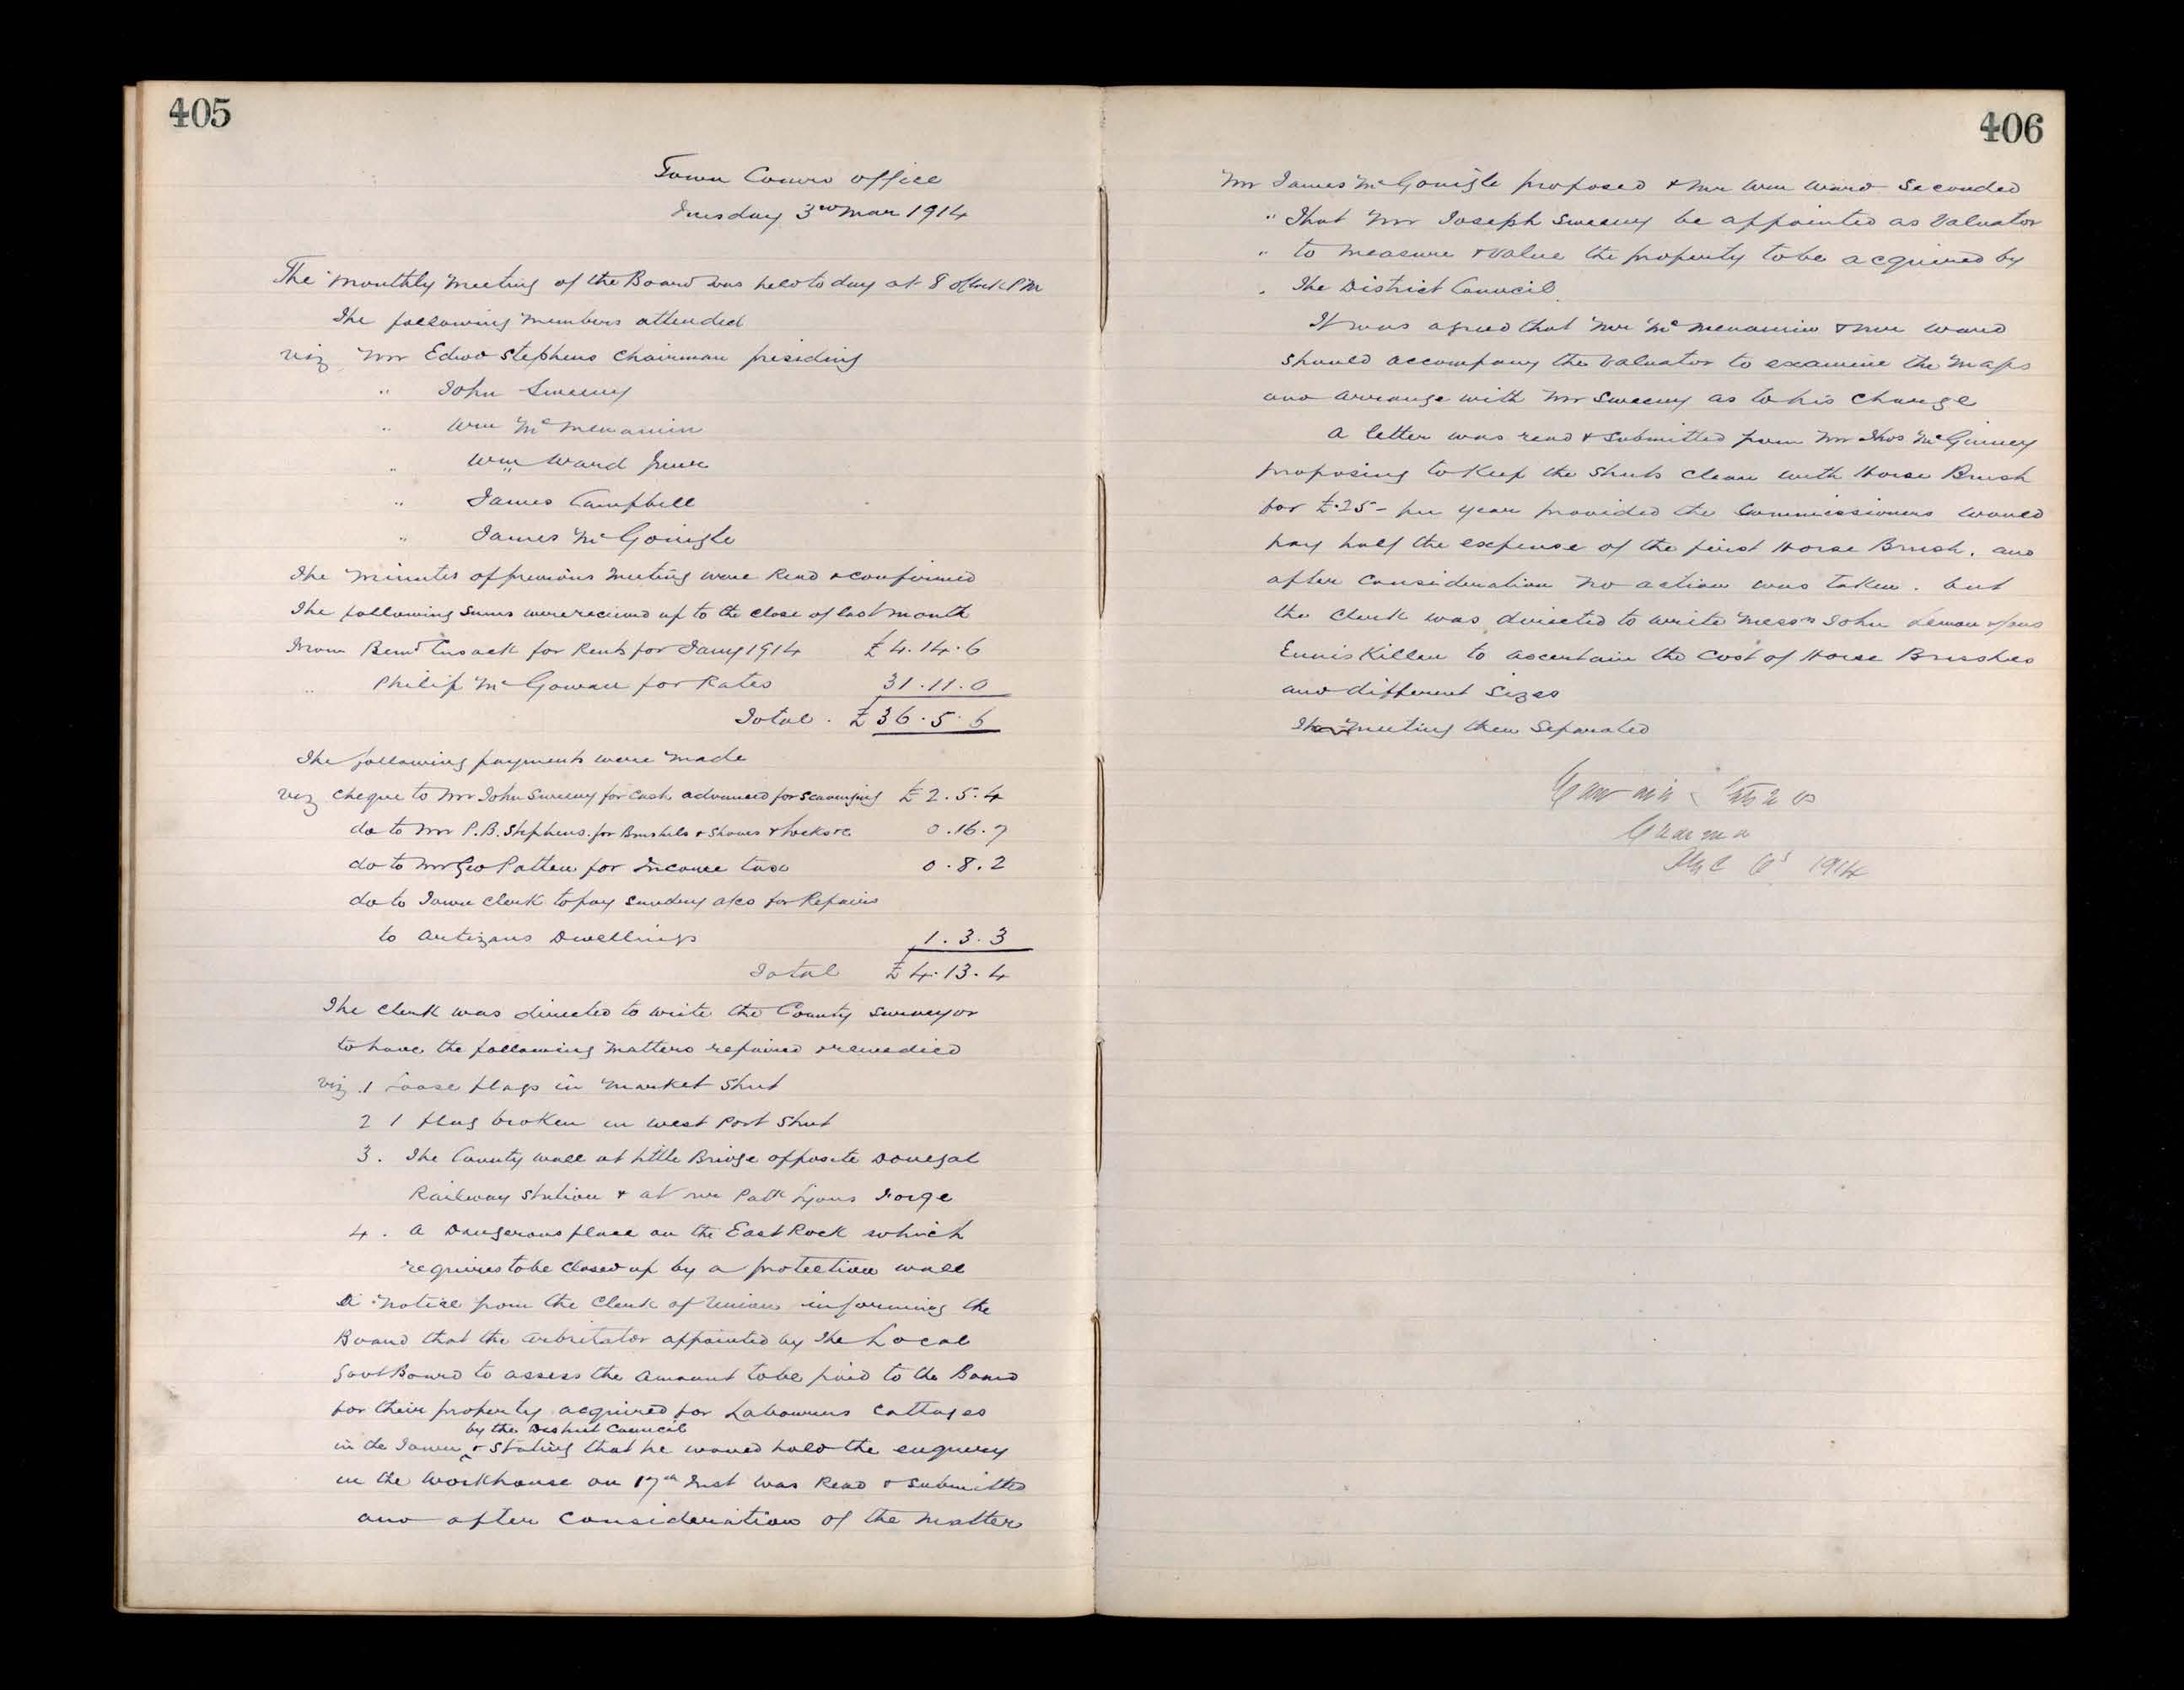 405
Town Comrs office
Tuesday 3rd Mar 1914
The Monthly Meeting of the Board was held to day at 8 oClock PM
The following Members attended
viz Mr Edwd Stephens Chairman presiding
" John Sweeny
" Wm McMenamin
" Wm Ward Junr
" James Campbell
" James McGonigle
The Minutes of previous Meeting were Read & confirmed
The following Sums were recieved up to the close of last month
From Bernd Cusack for Rents for Jany 1914 £4.14.6
" Philip McGowan for Rates 31.11.0
Total. £36.5.6
The following payments were Made
viz Cheque to Mr John Sweeny for Cash advanced for Scavenging £2.5.4
do to Mr P.B. Stephens. for Brushes & Shovels & Locks &c 0.16.7
do to Mr Geo Patten for Income tax 0.8.2
do to Town Clerk to pay Sundry a/cs for Repairs
to Artizans Dwellings 1.3.3
Total £4.13.4
The Clerk was directed to write the County Surveyor
to have the following Matters repaired & remedied
viz .1 Loose flags in Market Street
2 1 flag broken in West Port Street
3. The County wall at little Bridge opposite Donegal
Railway Station & at Mr Patk Lyons Forge
4. A Dangerous place on the East Rock which
requires to be Closed up by a protection wall
A Notice from the Clerk of Union informing the
Board that the Arbitrator appointed by the Local
Govt Board to assess the Amount to be paid to the Board
for their property acquired for Labourers Cottages
by the District Council
in the Town & Stating that he would hold the enquiry
in the Workhouse on 17th Inst was Read & Submitted
and after Consideration of the Matter
406
Mr James McGonigle proposed & Mr Wm Ward Seconded
" That Mr Joseph Sweeny be appointed as Valuator
" to Measure & Value the property to be acquired by
" The District Council.
It was agreed that Mr McMenamin & Mr Ward
Should accompany the Valuator to examine the Maps
and Arrange with Mr Sweeny as to his Charge
A letter was read & Submitted from Mr Thos McGinney
proposing to Keep the Streets Clean with Horse Brush
for £.25- per year provided the Commissioners would
pay half the expense of the first Horse Brush. and
after Consideration No action was taken. but
the Clerk was directed to write Messrs John Lemon & Sons
EnnisKillen to ascertain the Cost of Horse Brushes
and different Sizes
The Meeting then Separated
1914